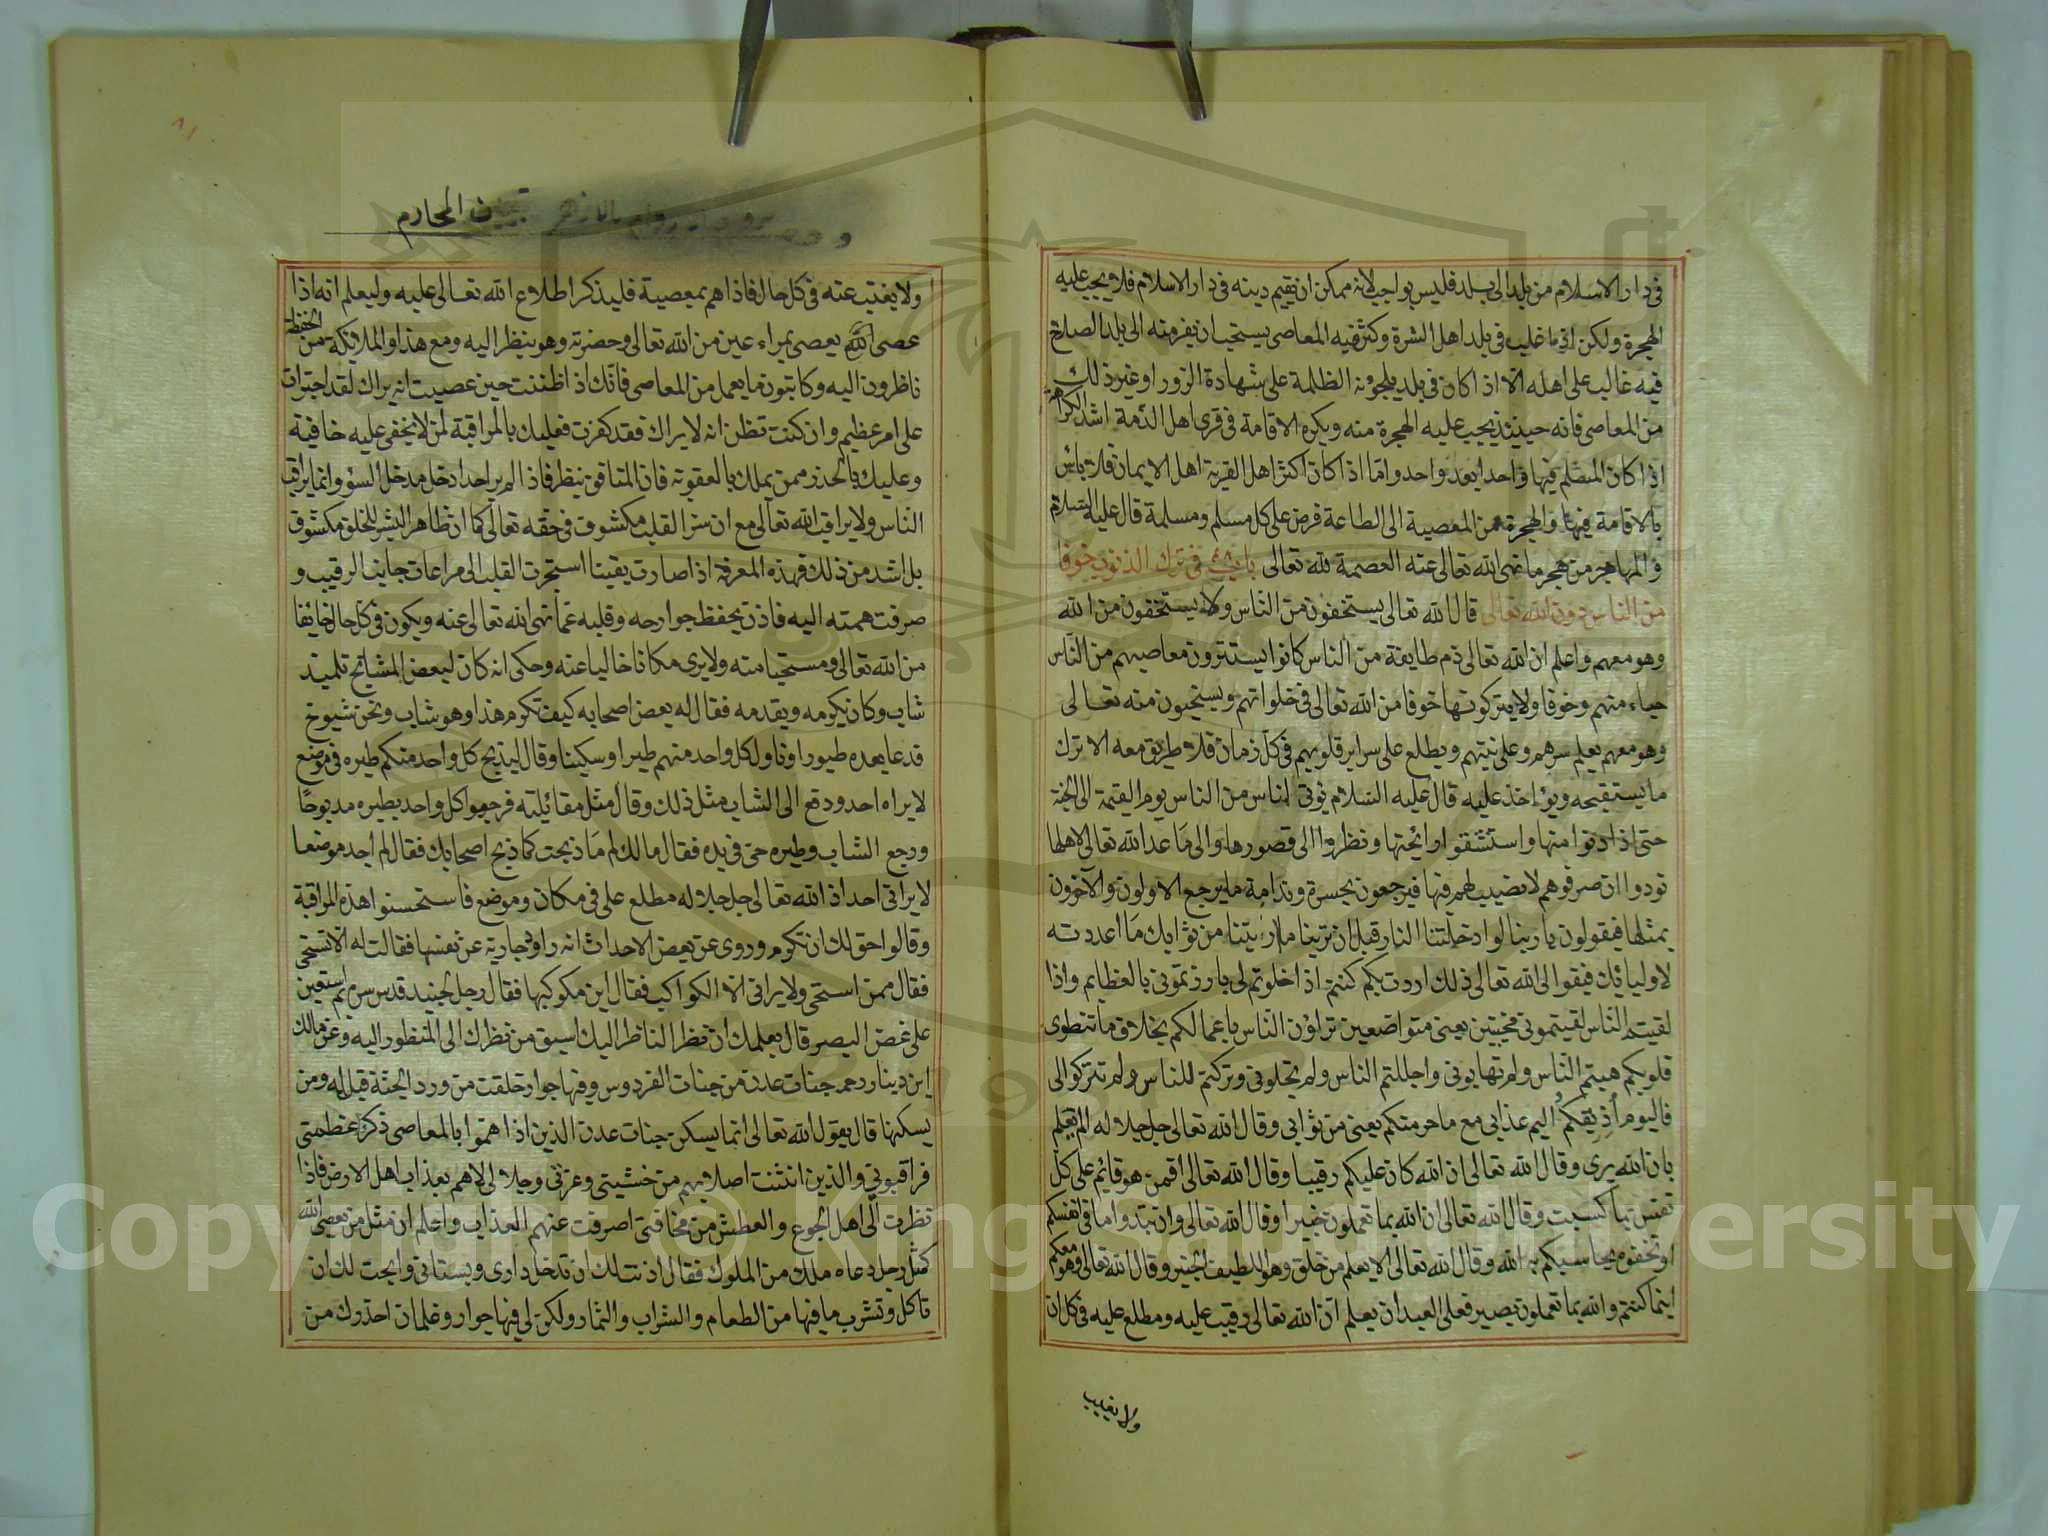 في دار الاسلام من بلد الى بلد فليس بواجب لانه ممكن ان يقيم دينه في دار الاسلام فلا يجب عليه
الهجرة ولكن اذا غلب في بلد اهل الشرة وكثر فيه المعاصي يستحب ان يفر منه الى بلد الصلاح
فيه غالب على اهله الا اذا كان في بلد يلجونه الظلمة على شهادة الزور او غير ذلك
من المعاصي فانه حينئذ يجب عليه الهجرة منه ويكره الاقامة في قرى اهل الذمة اشد الكراهة
اذا كان المسلم فيها واحدا بعد واحد واما اذا كان اكثر اهل القرية اهل الايمان فلا بأس
بالاقامة فيها والهجرة من المعصية الى الطاعة فرض على كل مسلم ومسلمة قال عليه السلام
والمهاجر من هجر ما نهى الله تعالى عنه العصمة لله تعالى باب في ترك الذنوب خوفا
من الناس دون الله تعالى قال الله تعالى يستخفون من الناس ولا يستخفون من الله
وهو معهم واعلم ان الله تعالى ذم طايفة من الناس كانوا يستترون معاصيهم من الناس
حياء منهم وخوفا ولا يتركونها خوفا من الله تعالى في خلواتهم ويستحيون منه تعالى
وهو معهم يعلم سرهم وعلى نيتهم ويطلع على سراير قلوبهم في كل زمان فلا طريق معه الا ترك
ما يستقبحه ويؤاخذ عليه قال عليه السلام يؤتى اناس من الناس يوم القيمة الى الجنة
حتى اذا دنوا منها واستنشقوا رائحتها ونظروا الى قصورها والى ما عد الله تعالى لاهلها
نودوا ان صرفوهم لا نصيب لهم فيها فيرجعون بحسرة وندامة ما يرجع الاولون والآخرون
بمثلها فيقولون يا ربنا لو ادخلتنا النار قبل ان ترينا ما اريتنا من ثوابك ما اعددته
لاوليائك فيقول الله تعالى ذلك اردت بكم كنتم اذا خلوتم لي بارزتموني بالعظايم واذا
لقيتم الناس لقيتموني مخبتين يعني متواضعين تراؤن الناس باعمالكم بخلاف ما تنطوي
قلوبكم هبتم الناس ولم تهابوني واجللتم الناس ولم تجلوني وتركتم للناس ولم تتركوا لي
فاليوم اذيقكم اليم عذابي مع ما حرمتكم يعني من ثوابي وقال الله تعالى جل جلاله الم يعلم
بان الله يرى وقال الله تعالى ان الله كان عليكم رقيبا وقال الله تعالى افمن هو قائم على كل
نفس بما كسبت وقال الله تعالى ان الله بما تعملون خبيرا وقال الله تعالى وان تبدوا ما في انفسكم
او تخفوه يحاسبكم به الله وقال الله تعالى الا يعلم من خلق وهو اللطيف الخبير وقال الله تعالى وهو معكم
اينما كنتم والله بما تعملون بصير فعلى العبد ان يعلم ان الله تعالى رقيب عليه ومطلع عليه في كل ان
ولا يغيب
تبيين المحارم
ولا يغيب عنه في كل حال فاذا هم بمعصية فليذكر اطلاع الله تعالى عليه وليعلم انه اذا
عصى الله يعصى بمراء عين من الله تعالى وحضرته وهو ينظر اليه ومع هذا والملائكة من الحفظة
ناظرون اليه وكاتبون ما يعمل من المعاصي فانك اذا ظننت حين عصيت انه يراك لقد اجترات
على امر عظيم وان كنت تظن انه لا يراك فقد كفرت فعليك بالمراقبة لمن لا يخفى عليه خافية
وعليك بالحذر ممن يملك بالعقوبة فان المنافق ينظر فاذا لم ير احدا دخل مدخل السوء وانما يراقب
الناس ولا يراقب الله تعالى مع ان سر القلب مكشوف في حقه تعالى كما ان ظاهر البشر للخلق مكشوف
بل اشد من ذلك فهذه المعرفة اذا صارت يقينا استجرت القلب الى مراعات جانب الرقيب و
صرفت همته اليه فاذن يحفظ جوارحه وقلبه عما نهى الله تعالى عنه ويكون في كل حال خايفا
من الله تعالى ومستحيا منه ولا يرى مكانا خاليا عنه وحكى انه كان لبعض المشائخ تلميذ
شاب وكان يكرمه ويقدمه فقال له بعض اصحابه كيف تكرم هذا وهو شاب ونحن شيوخ
فدعا بعده طيورا وناول كل واحد منهم طيرا وسكينا وقال ليذبح كل واحد منكم طيره في موضع
لا يراه احد ودفع الى الشاب مثل ذلك وقال مثل مقالته فرجعوا كل واحد بطيره مذبوحا
ورجع الشاب وطيره حي في يده فقال مالك لم ما ذبحت كما ذبح اصحابك فقال لم اجد موضعا
لا يراني احد اذ الله تعالى جل جلاله مطلع علي في مكان وموضع فاستحسنوا هذه المراقبة
وقالوا حق لك ان تكرم وروى عن بعض الاحداث انه راود جارية عن نفسها فقالت له الا تستحي
فقال ممن استحي ولا يراني الا الكواكب فقال اين مكوكبها فقال رجل لجنيد قدس سره بم استعين
على غض البصر قال بعلمك ان نظر الناظر اليك اسبق من نظرك الى المنظور اليه وعن مالك
ابن دينار رحمه جنات عدن من جنات الفردوس وفيها جوار خلقت من ورد الجنة قيل له ومن
يسكنها قال يقول الله تعالى انما يسكن جنات عدن الذين اذا هموا بالمعاصي ذكروا عظمتي
فراقبوني والذين انثنت اصلابهم من خشيتي وعزتي وجلالي لاهم بعذاب اهل الارض فاذا
نظرت الى اهل الجوع والعطش من مخافتي اصرفت عنهم العذاب واعلم ان مثل من يعصي الله
كمثل رجل دعاه ملك من الملوك فقال اذنت لك ان تدخل داري وبستاني وابحت لك ان
تاكل وتشرب ما فيها من الطعام والشراب والثمار ولكن لي فيها جوار وغلمان احذرك من
Copyright © King Saud University